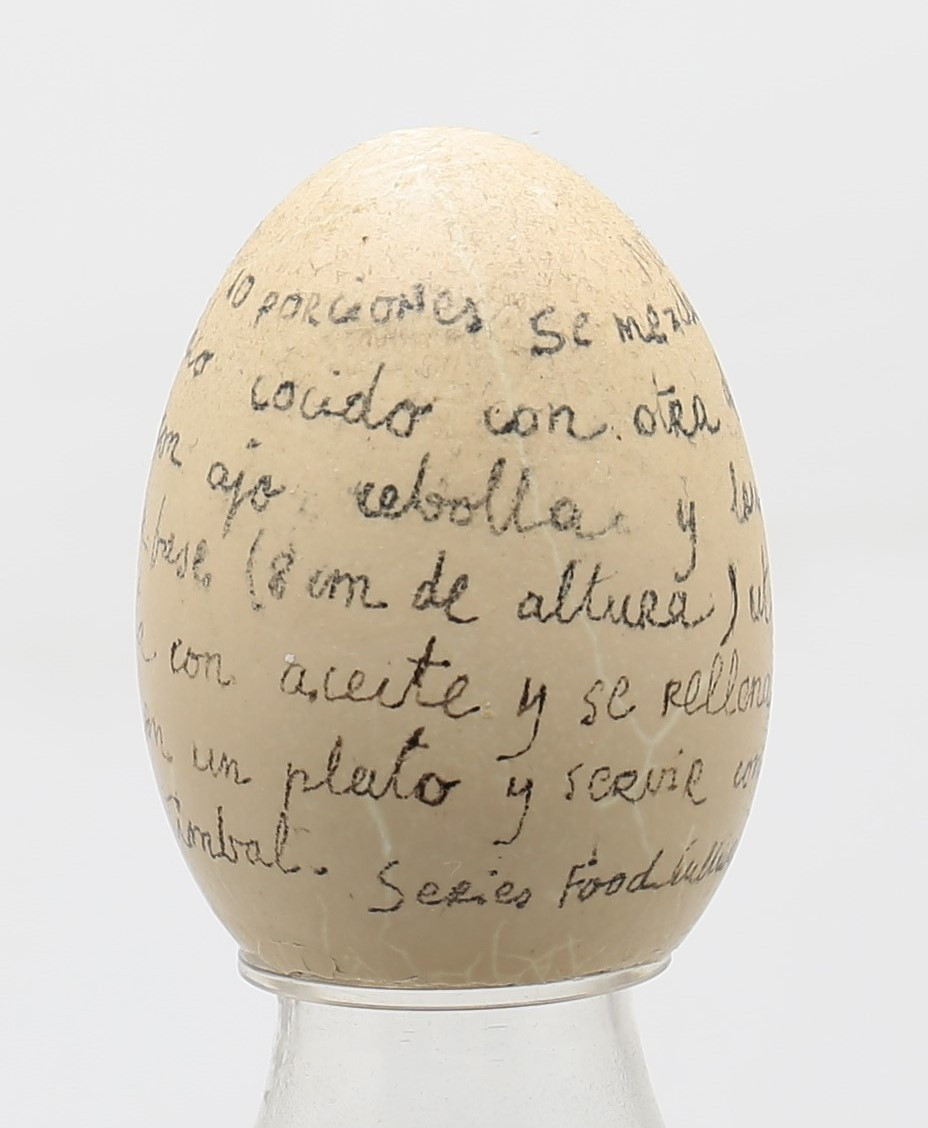 10 PORCIONES SE
cocido con otra
ajo cebolla y
base (8 cm de altura)
con aceite y se rellena
un plato y servir con
timbal.
Series Food